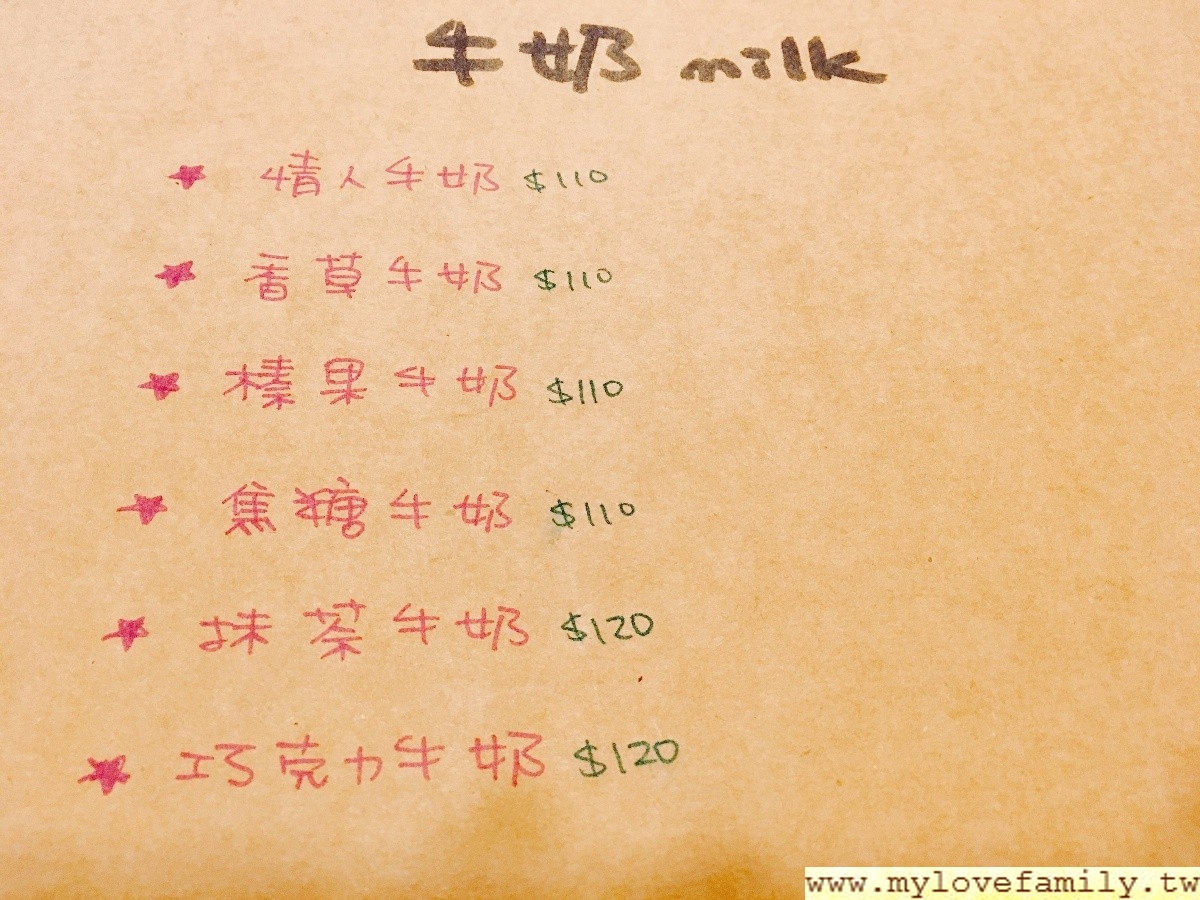 牛奶 milk
★ 情人牛奶 $110
★ 香草牛奶 $110
★ 榛果牛奶 $110
★ 焦糖牛奶 $110
★ 抹茶牛奶 $120
★ 巧克力牛奶 $120
www.mylovefamily.tw